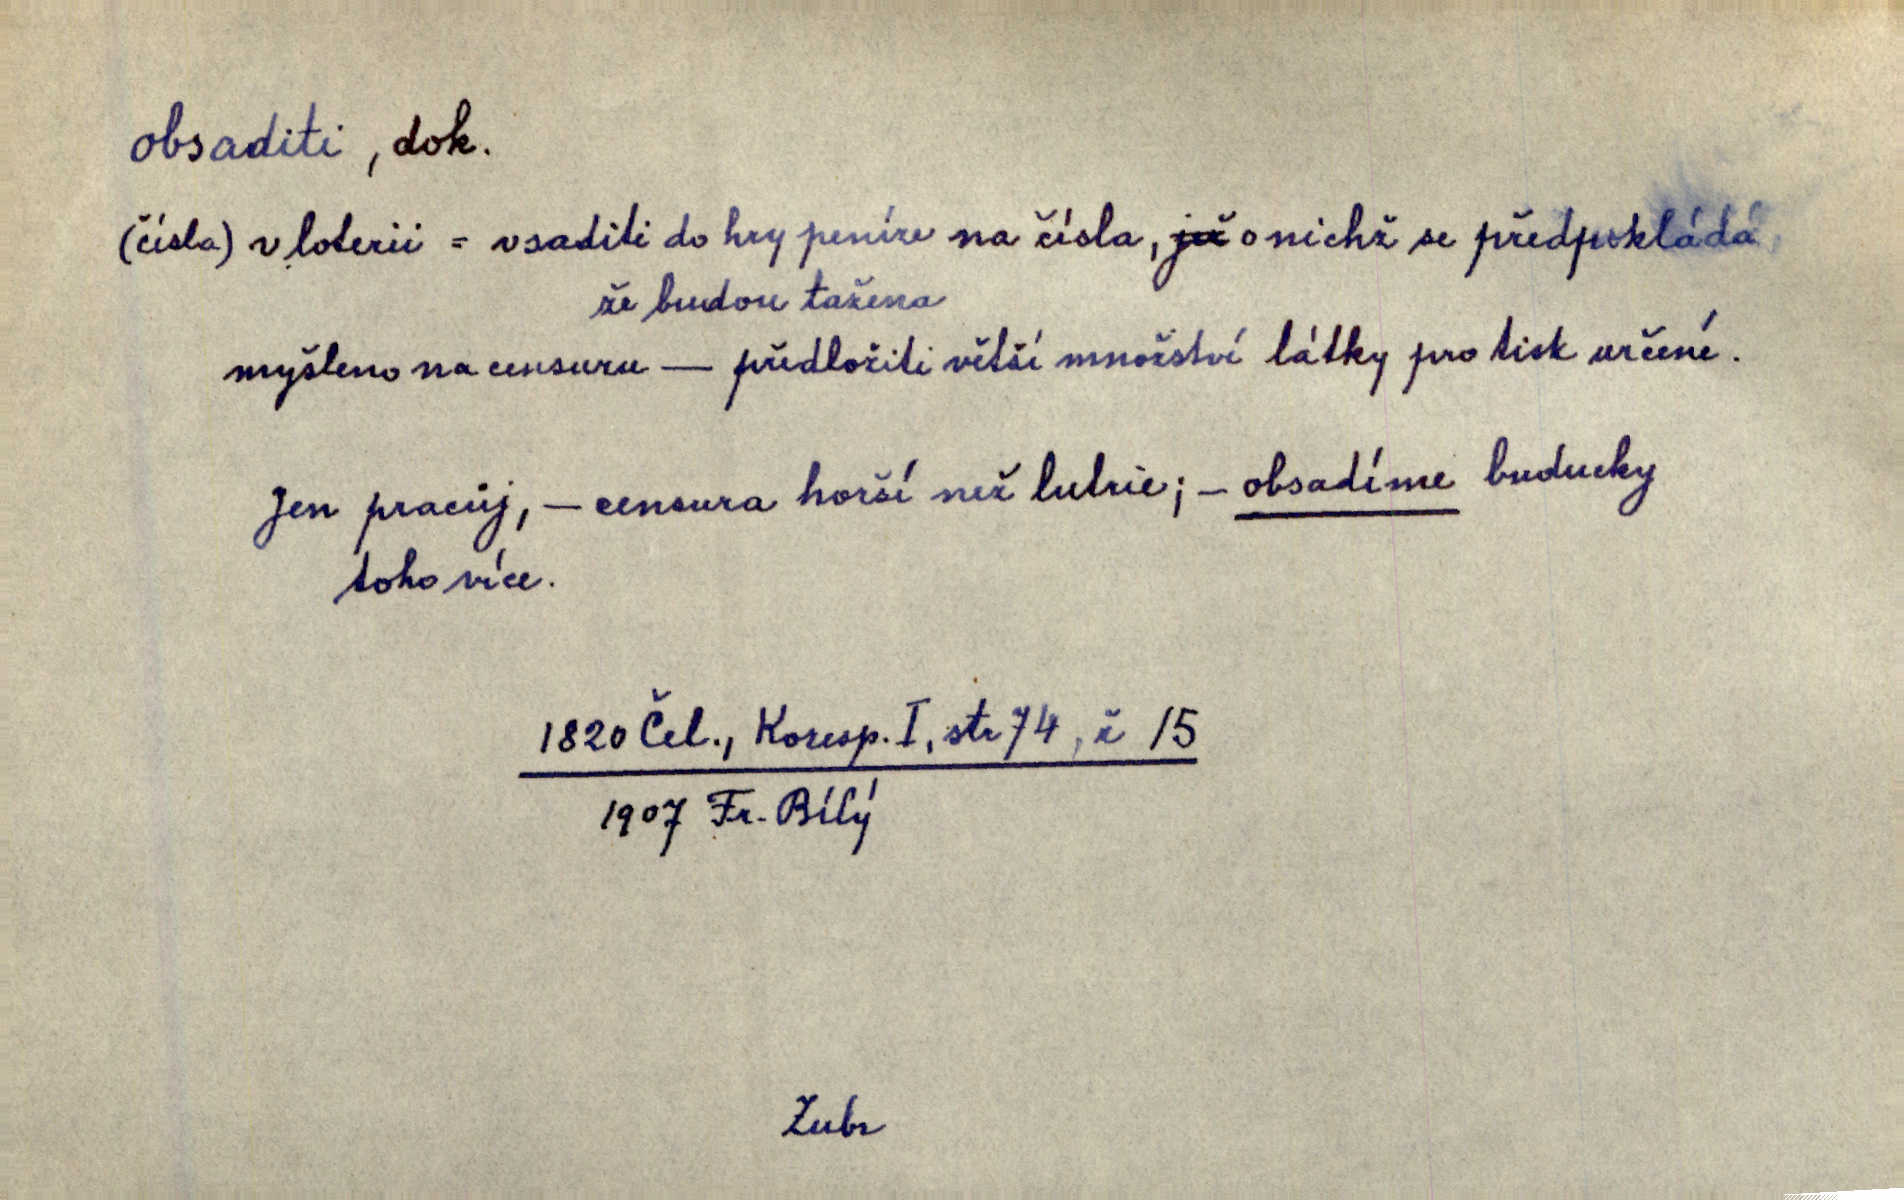 obsaditi, dok.
(čísla) v loterii = vsaditi do hry peníze na čísla, o nichž se předpokládá,
že budou tažena
myšleno na censuru — předložiti větší množství látky pro tisk určené.
Jen pracůj, — censura horší než lutrie; — obsadíme buducky
toho více.
1820 Čel., Koresp. I, str 74, ř 15
1907 Fr. Bílý
Zubr